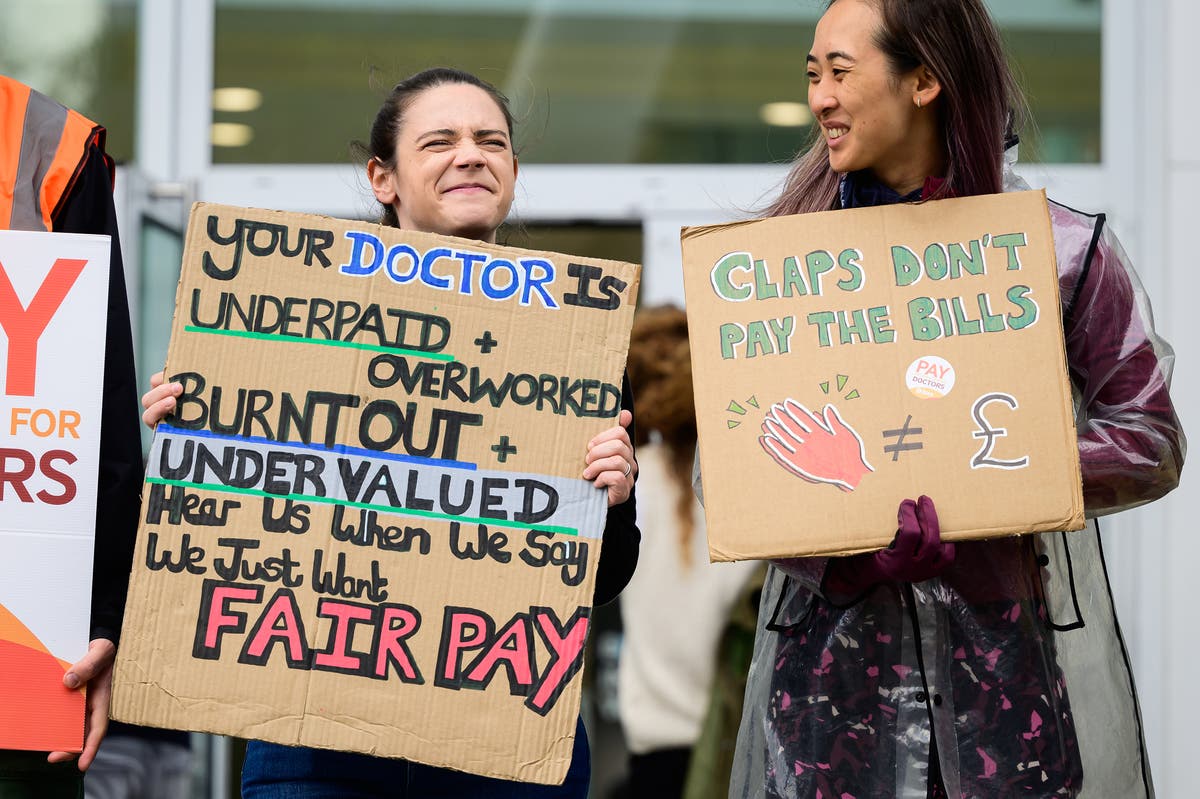 Y
FOR
RS
YOUR DOCTOR IS
UNDERPAID +
OVERWORKED
BURNT OUT +
UNDERVALUED
Hear Us When We Say
We Just Want
FAIR PAY
CLAPS DON'T
PAY THE BILLS
PAY
DOCTORS
≠ £